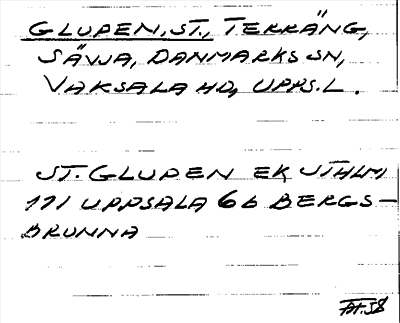 GLUPEN, ST., TERRÄNG,
SÄVJA, DANMARKS SN,
VAKSALA HD, UPPS.L.
ST. GLUPEN EK UTHLM
111 UPPSALA 6b BERGS-
BRUNNA